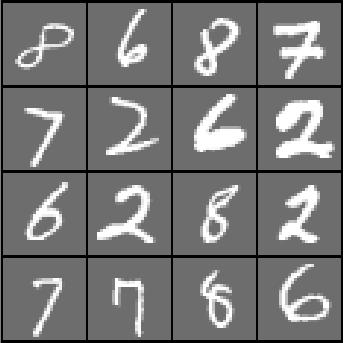 8 6 8 7
7 2 6 2
6 2 8 2
7 7 8 6